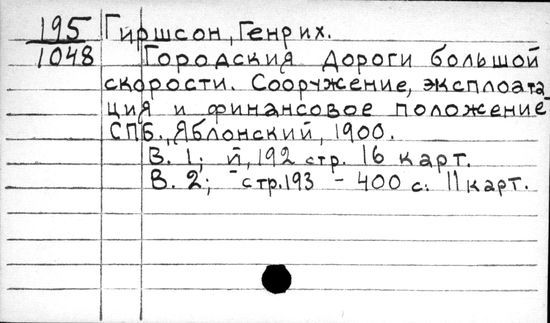 195 Гиршсон, Генрих.
1048 Городския дороги большой
скорости. Сооружение, эксплоата-
ция и финансовое положение
СПБ., Яблонский, 1900.
В. 1; II, 192 стр. 16 карт.
В. 2; стр. 193 - 400 с. 11 карт.